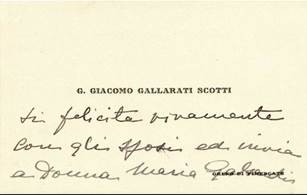 G. GIACOMO GALLARATI SCOTTI
si felicita vivamente
con gli sposi ed invia
a Donna Maria